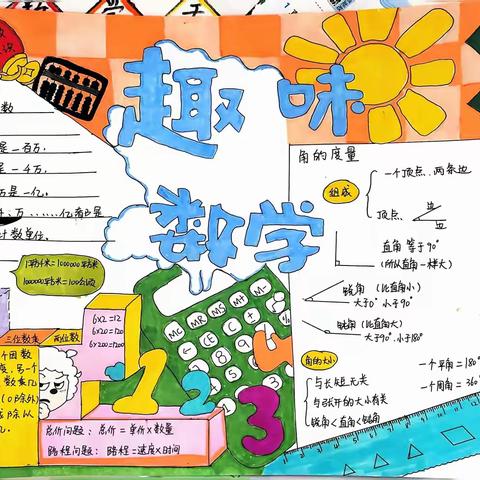 趣味
数学
数
是一百万.
是一千万.
万是一亿.
万......亿都是
计数单位.
1平方千米=1000000平方米
1000000平方米=100公顷
三位数乘
两位数
个因数
另一个
数乘几
(0除外)
或除以
6×2=12
6×20=120
6×200=1200
MC MR MS M+ M-
C
1
2
3
总价问题:总价=单价×数量
路程问题:路程=速度×时间
角的度量
组成
一个顶点、两条边
顶点
边
边
直角 等于90°
(所以直角一样大)
锐角 (比直角小)
大于0° 小于90°
钝角 (比直角大)
大于90°.小于180°
角的大小
与长短无关
与张开的大小有关
锐角<直角<钝角
一个平角=180°
一个周角=360°